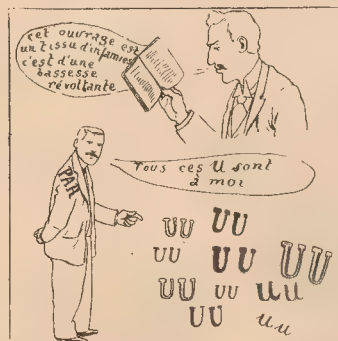 cet ouvrage est
un tissu d'infamies
c'est d'une
bassesse
révoltante
Tous ces U sont
à moi
PAR
UU UU
UU UU UU
UU UU UU
UU UU